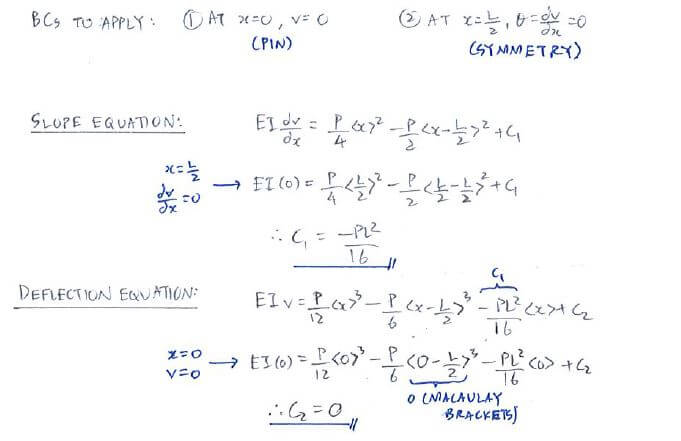 BCS TO APPLY: ① AT x=0, v=0 ② AT x=L/2, θ=dv/dx=0
(PIN) (SYMMETRY)
SLOPE EQUATION: EI dv/dx = P/4 <x>² - P/2 <x-L/2>² + C₁
x=L/2
dv/dx=0 → EI(0) = P/4 <L/2>² - P/2 <L/2-L/2>² + C₁
∴ C₁ = -PL²/16
C₁
DEFLECTION EQUATION: EIv = P/12 <x>³ - P/6 <x-L/2>³ - PL²/16 <x> + C₂
x=0
v=0 → EI(0) = P/12 <0>³ - P/6 <0-L/2>³ - PL²/16 <0> + C₂
0 (MACAULAY
BRACKETS)
∴ C₂ = 0